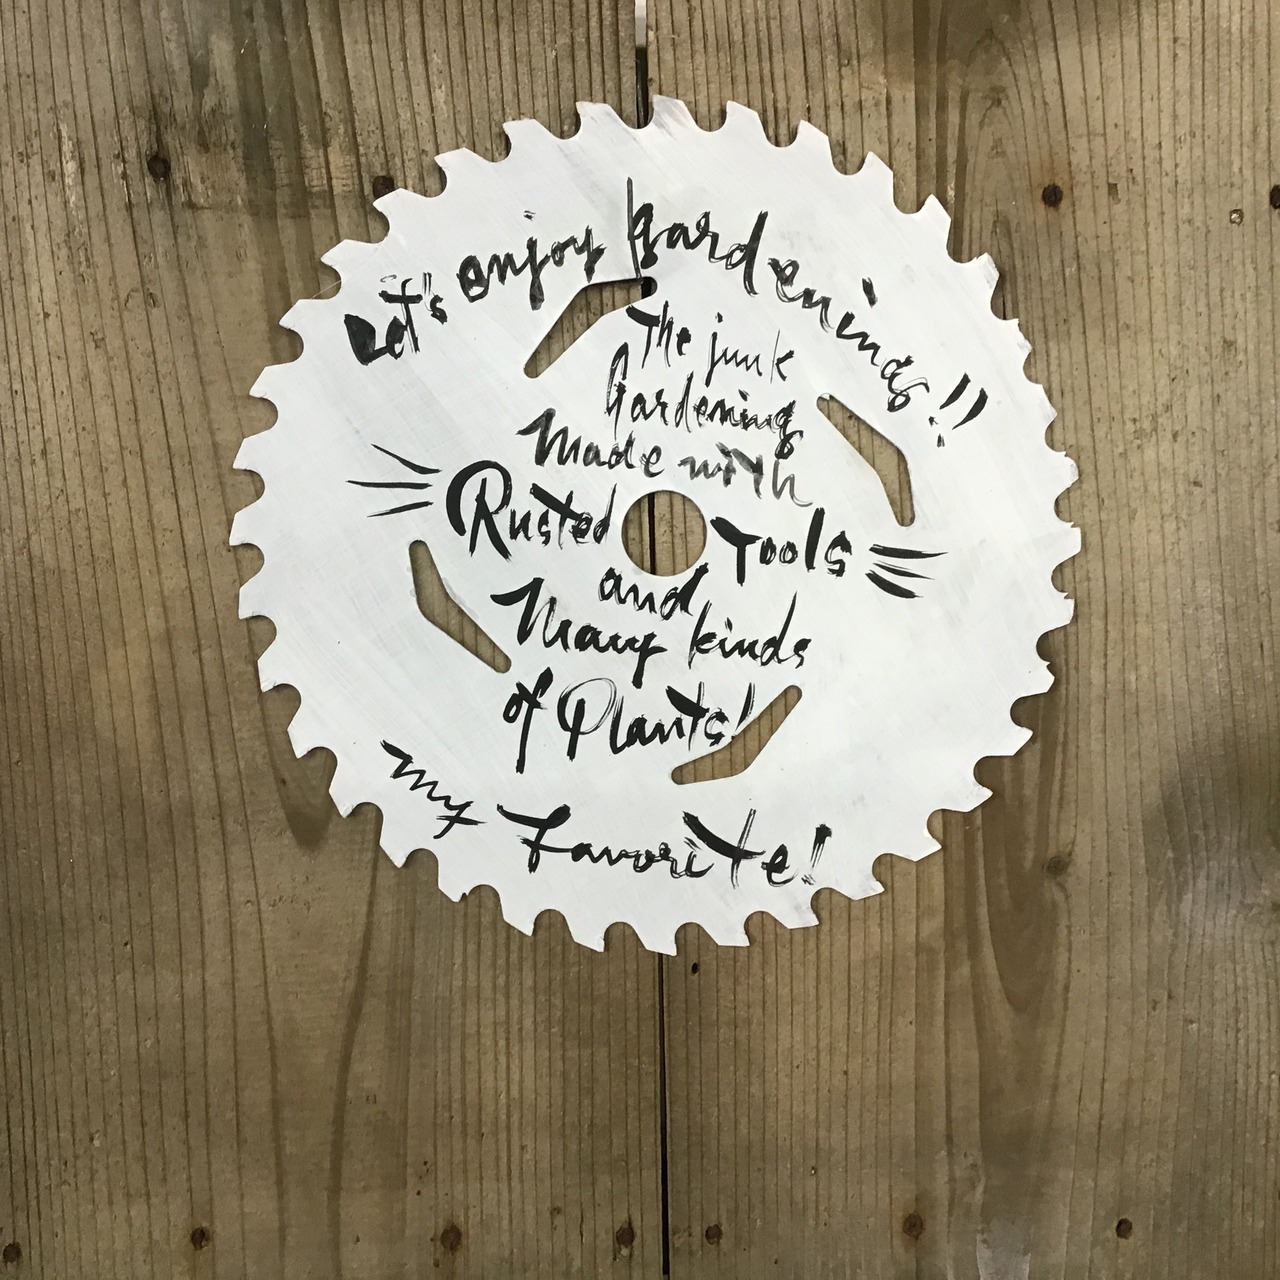 Let's enjoy gardenings!!
The junk
Gardening
Made with
Rusted Tools
and
Many kinds
of Plants!
My Favorite!